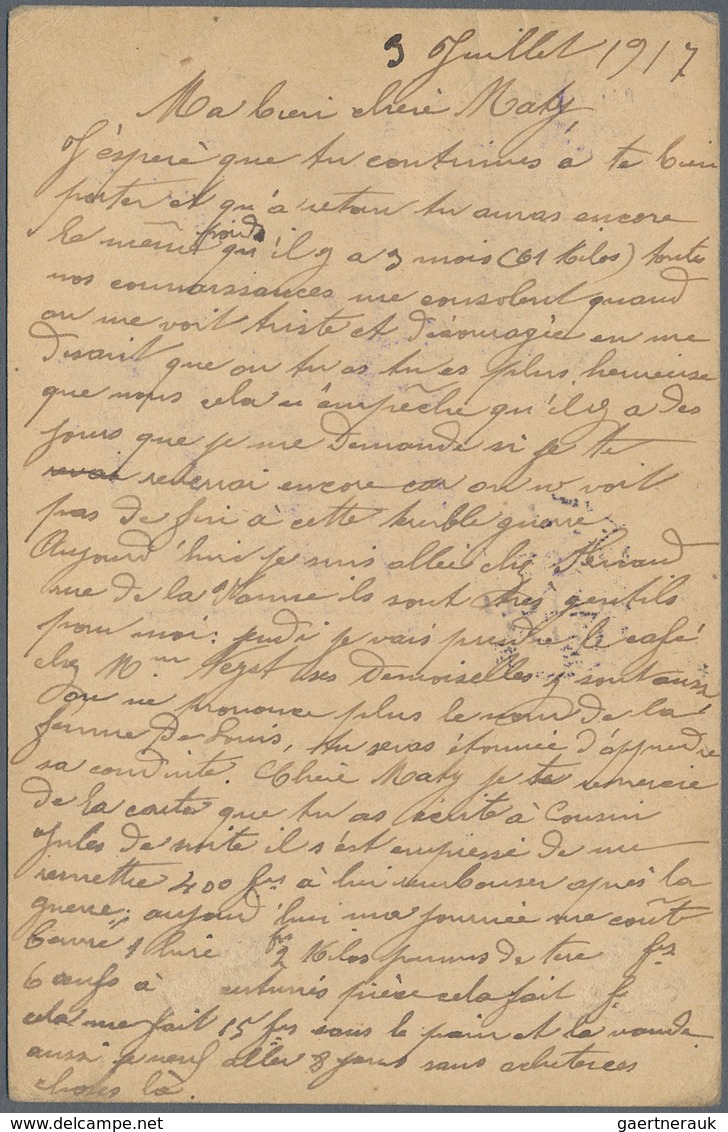 3 Juillet 1917
Ma bien chère Maty,
J'éspère que tu continues a te bien
porter et qu'a retour tu auras encore
poids
le même qu'il y a 3 mois (61 kilos) toutes
nos connaissances me consolent quand
on me voit triste et découragée en me
disant que ou tu es tu es plus heureuse
que nous cela n'empêche qu'il y a des
jours que je me demande si je te
reverrai encore car on n voit
pas de fin à cette terrible guerre
Aujourd'hui je suis allée chez
rue de la ils sont très gentils
pour moi. jeudi je vais prendre le café
chez Mme ses Demoiselles y sont aussi
on ne prononce plus le nom de la
femme de Louis, tu seras étonnée d'apprendre
sa conduite. Chère Maty je te remercie
de la carte que tu as écrite à Cousin
Jules de suite il s'est empressé de me
remettre 400 frs à lui rembourser après la
guerre; aujourd'hui ma journée me coûte
beurre 1 livre frs 2 kilos pommes de tere frs
6 œufs à centimes pièce cela fait f.
cela me fait 15 frs sans le pain et la viande
aussi je veux aller 8 jours sans acheter ces
choses là.
gaertnerauk